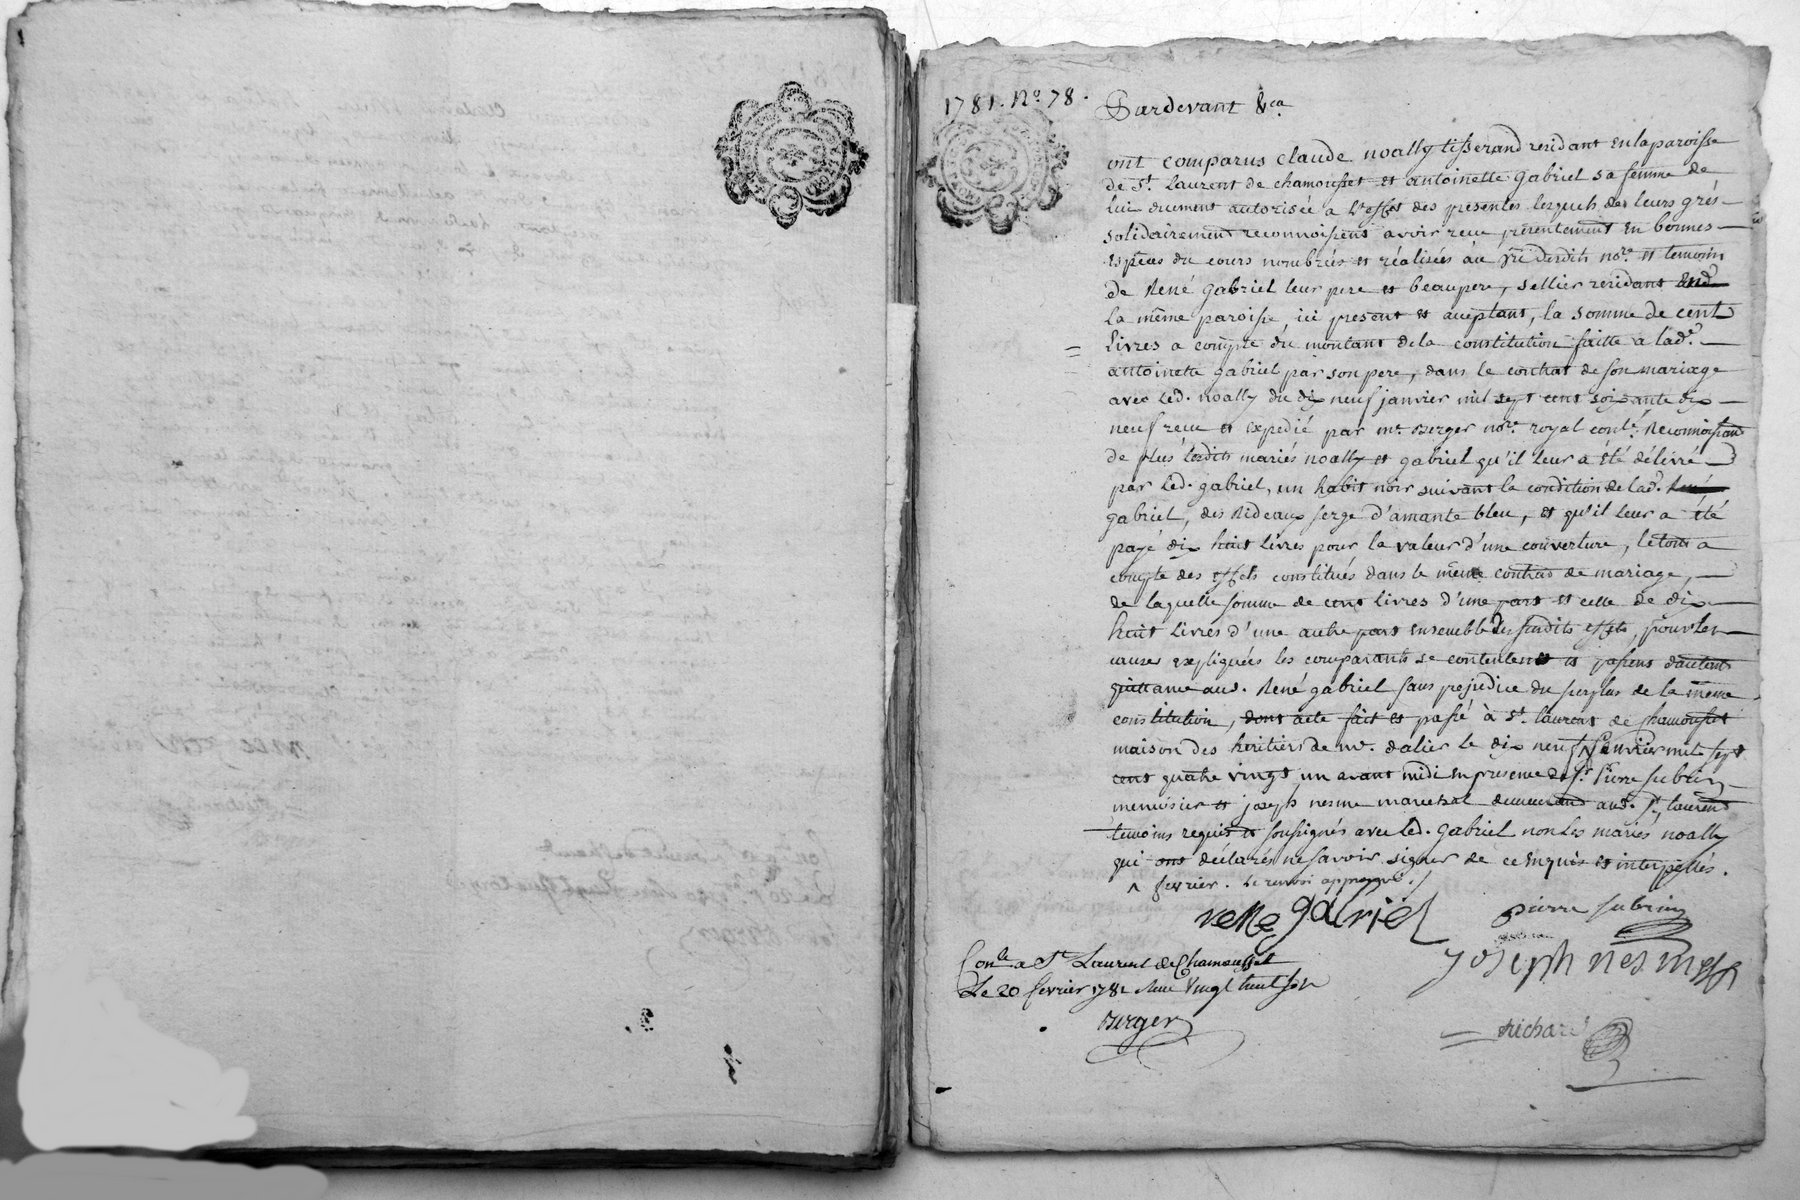 1781. No. 78.
Pardevant &ca
ont comparus claude noally tisserand residant en la paroisse
de St. Laurent de chamousset et antoinette gabriel sa femme de
lui duement autorisée a l'effet des presentes lesquels de leurs grés
solidairement reconnoissent avoir recu presentement en bonnes
especes du cours nombrées et réalisées au desdits nore. et temoins
de René gabriel leur pere et beaupere, sellier residant
la même paroisse, ici present et aceptant, la somme de cent
Livres a compte du montant de la constitution faitte a lade.
antoinette gabriel par son pere, dans le contrat de son mariage
avec led. noally du dix neuf janvier mil sept cent soixante dix
neuf recu et expedié par me Berger nore. royal Reconnoissant
de plus lesdits mariés noally et gabriel qu'il leur a été délivré
par led. gabriel, un habit noir suivant la condition de lad.
gabriel, des Rideaux serge d'amante bleu, et qu'il leur a été
payé dix huit livres pour la valeur d'une couverture, le tout a
compte des effets constitués dans le même contrat de mariage,
de laquelle somme de cent livres d'une part et celle de dix
huit livres d'une autre part ensemble des susdits effets, pour les
causes expliquées les comparants se contentent et passent d'autant
quittance aud. René gabriel sans prejudice du surplus de la même
constitution, dont acte fait et passé à St. laurent de chamousset
maison des heritiers de me. dalier le dix neuf janvier mil sept
cent quatre vingt un avant midi en presence de Sr. Pierre subrin
menuisier et joseph nesme marechal demeurant aud. St. laurent
temoins requis et soussignés avec led. gabriel non les mariés noally
qui ont déclarés ne savoir signer de ce enquis et interpellés.
^ fevrier. le renvoi approuvé.
rene gabriel
pierre subrin
Conlé a St Laurent de Chamousset
joseph nesme
Le 20 fevrier 1781 Recu Vingt huit sols
Berger
Richard